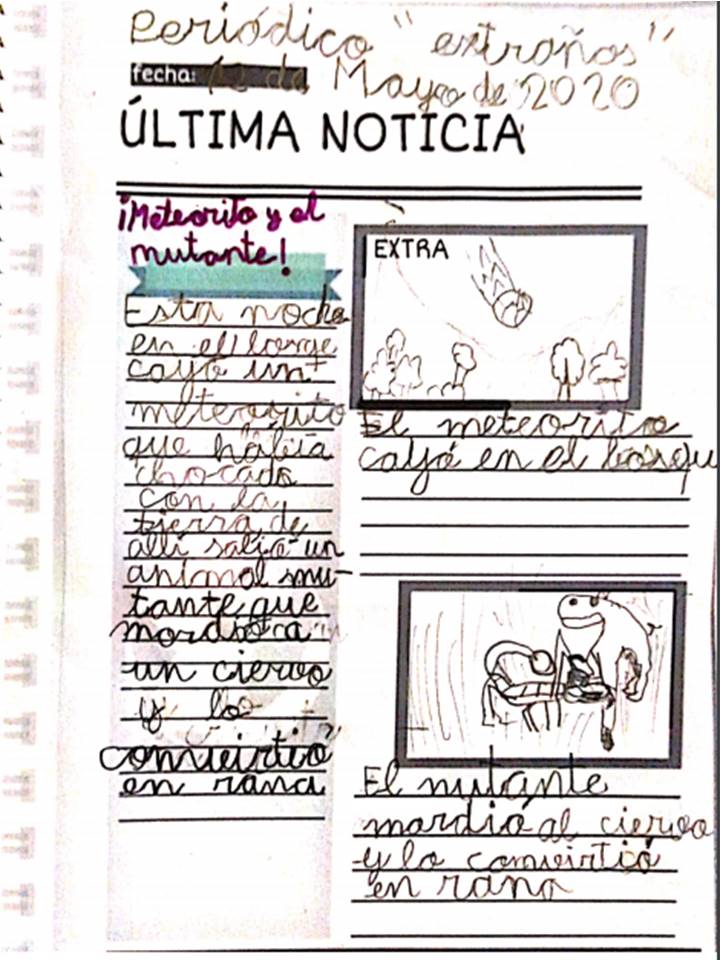 Periódico "extraños"
fecha: 12 de Mayo de 2020
ÚLTIMA NOTICIA
¡Meteorito y el
mutante!
Esta noche
en el bosque
cayó un
meteroíto
que había
chocado
con la
tierra de
allí salió un
animal mu-
tante que
mordió a
un ciervo
y lo
convirtió
en rana
EXTRA
El meteorito
cayó en el bosqu
El mutante
mordió al ciervo
y lo convirtió
en rana